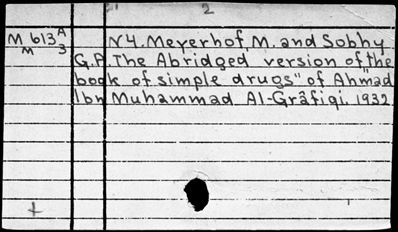 2
M 613 A N4. Meyerhof, M. and Sobhy
M 3 G.P. The Abridged version of "the
book of simple drugs" of Ahmad
Ibn Muhammad Al-Grâfiqi. 1932